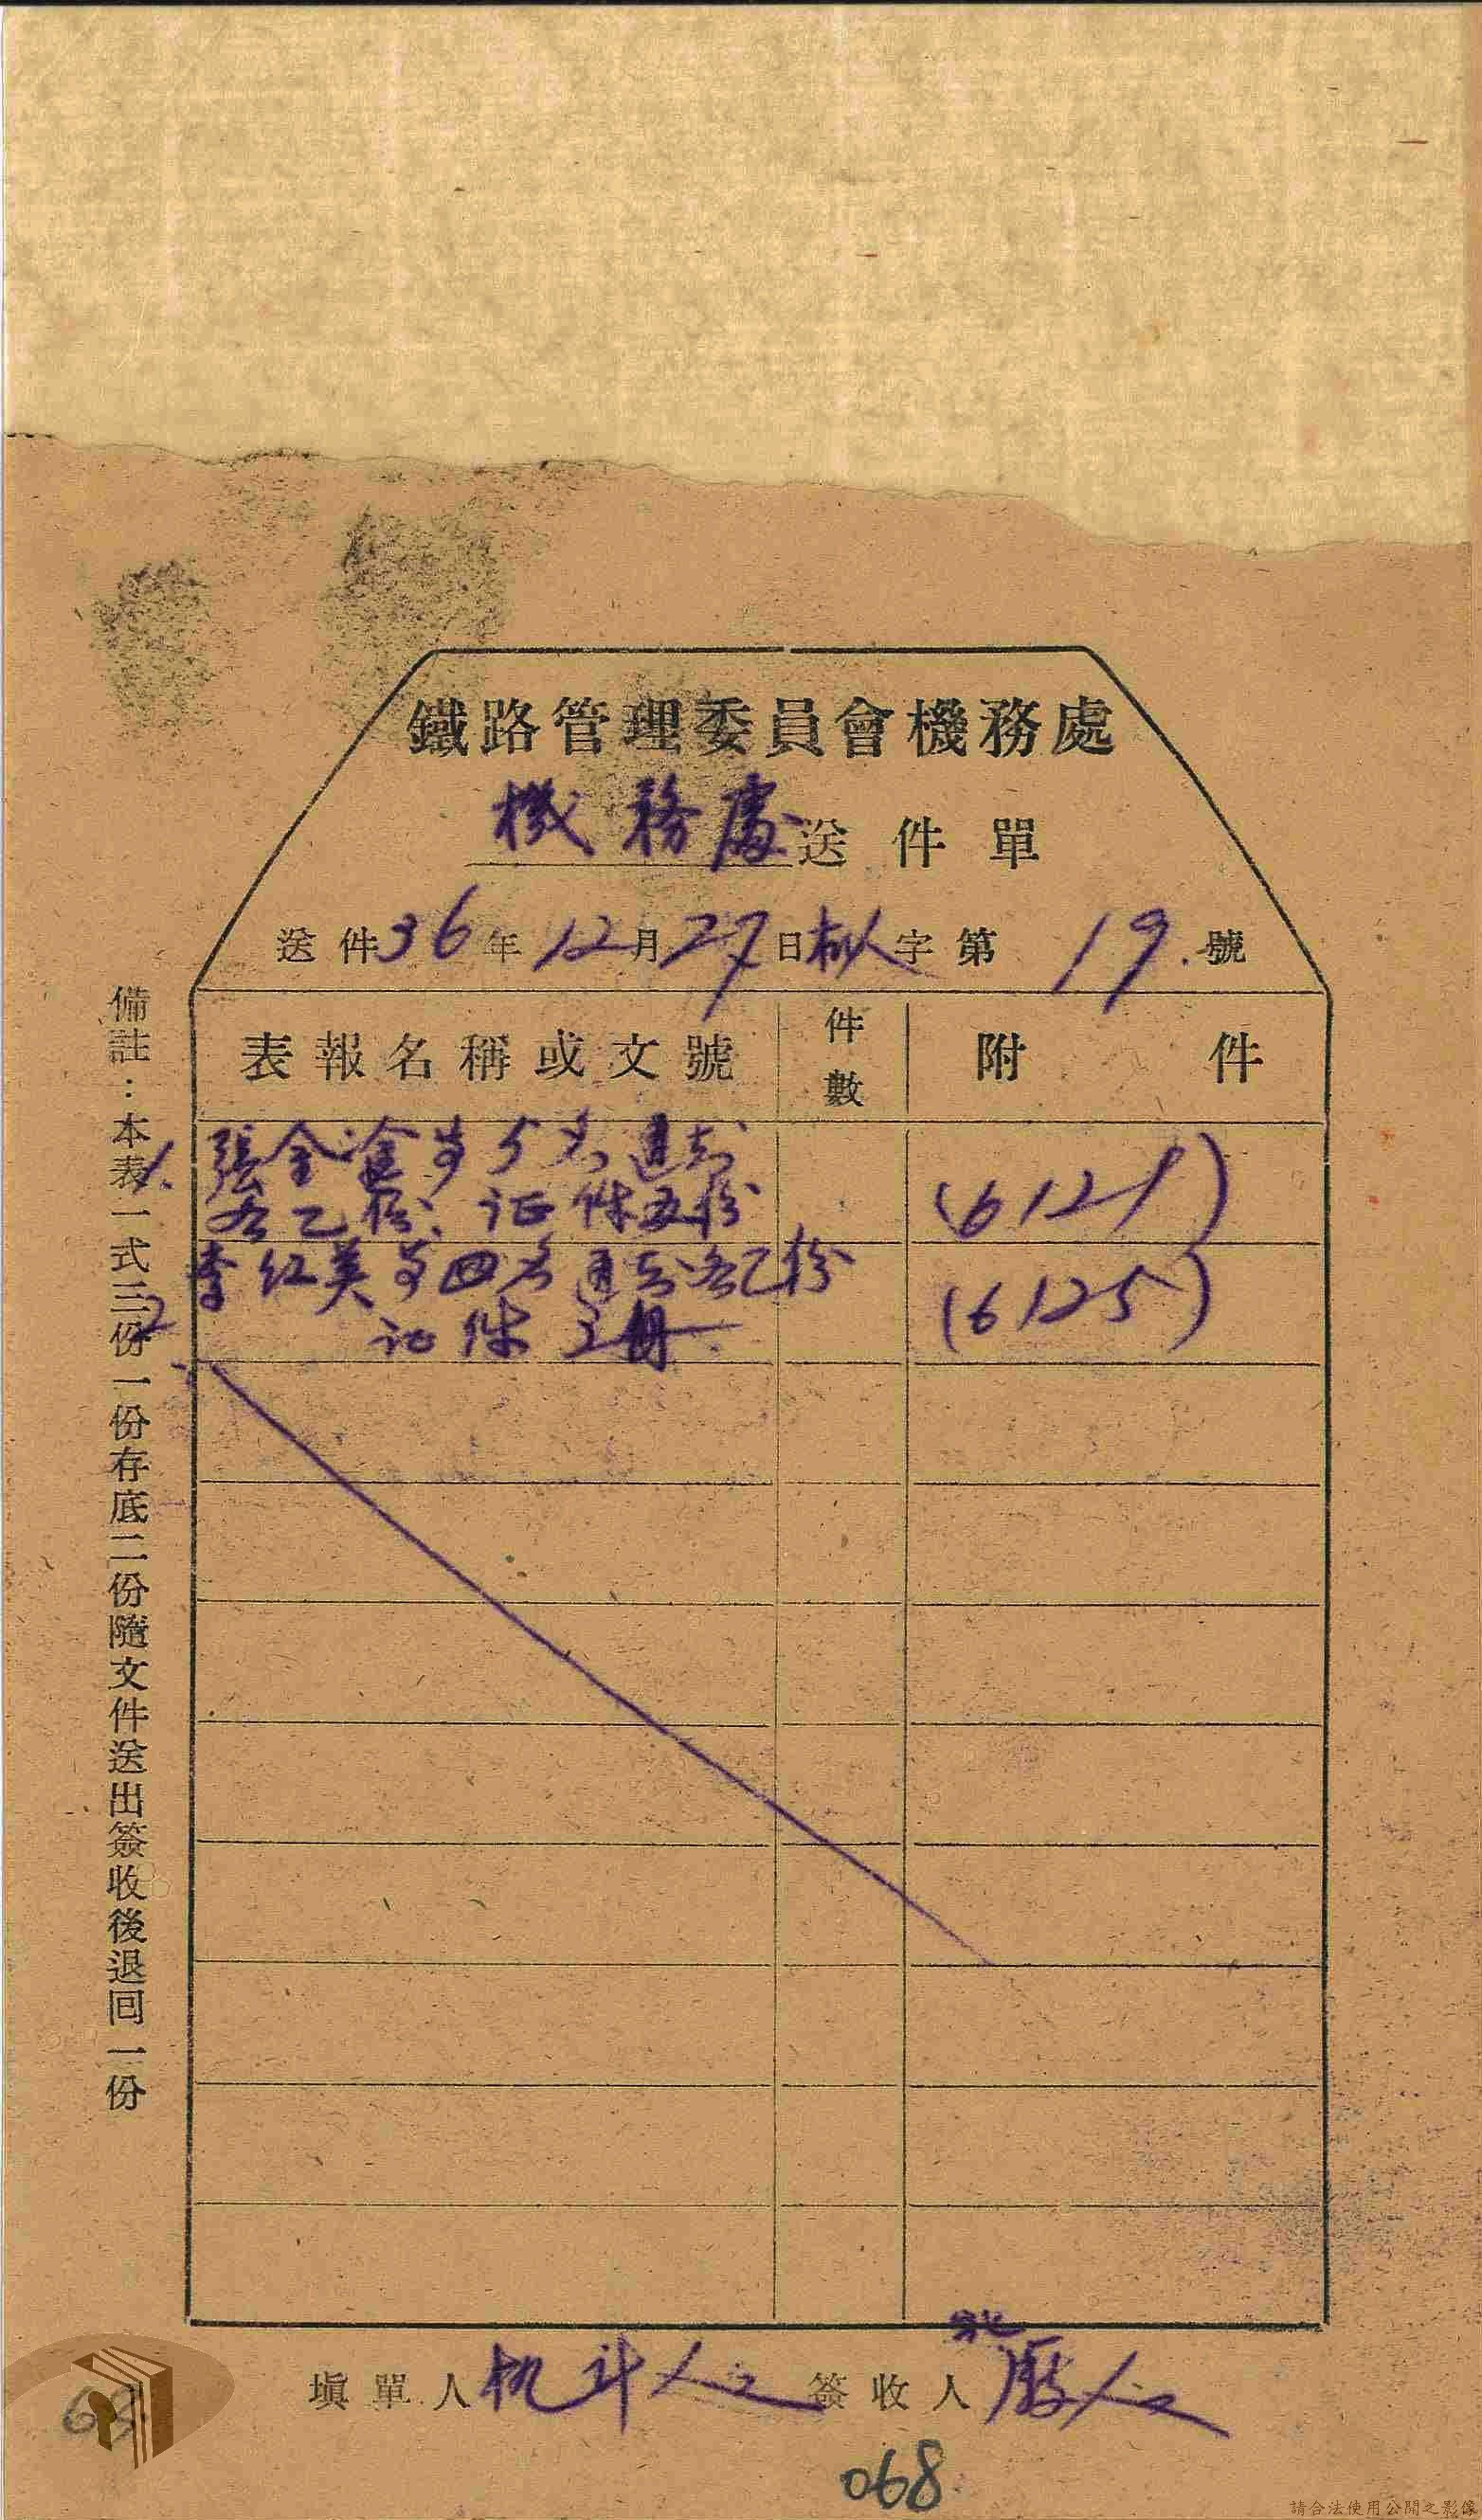 鐵路管理委員會機務處
機務處送件單
送件36年12月27日机人字第19號
表報名稱或文號 件數 附件
1. 張金淦等5名通知
各乙份、证件五份 (6121)
2 李红英等四名通知各乙份
证件 册 (6125)
備註:本表一式三份一份存底二份隨文件送出簽收後退回一份
填單人机計人 簽收人 廠人
68
068
請合法使用公開之影像